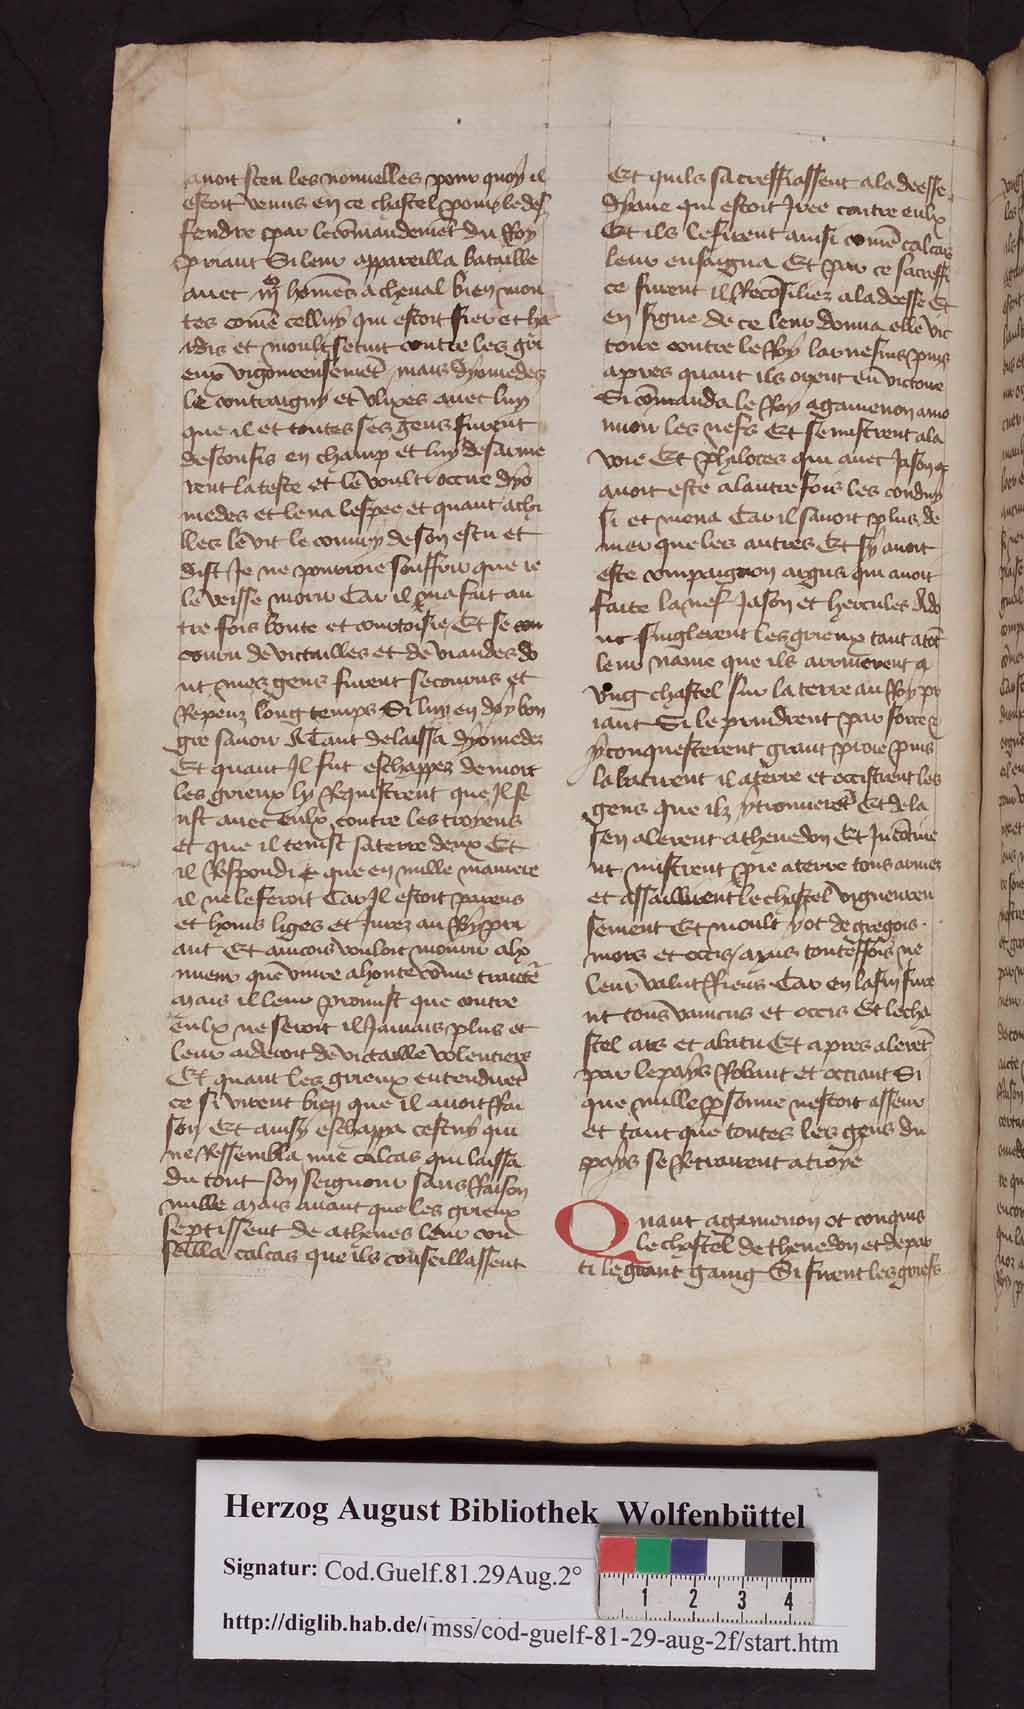 auoit sceu les nouuelles pour quoy il
estoit venus en ce chastel pour le def
fendre par le cōmandemēt du Roy
priant Si leur appareilla bataille
auec homēs a cheual bien mon
tes comē celluy qui estoit fier et ha
rdis et moult se tint contre les gri
eux vigoureusemēt mais dyomedes
le contraigny et vlixes auec luy
que il et toutes ses gens furent
desconfis en champ et luy desarme
rent la teste et le voult occire dyo
medes et leua lespee et quant achi
lles le vit le couury de son escu et
dist Je ne pourroie souffrir que ie
le veisse morir Car il ma fait au
tre fois bonte et courtoisie Et se con
couru de victailles et de viandes do
nt mes gens furent secourus et
Repeuz long temps Si luy en doy bon
gre sauoir A Tant delaissa dyomedes
Et quant Il fut eschappez de mort
les grieux ly Requistrent que Il fe
ust auec eulx contre les troyens
et que il tenist sa terre deux Et
il Respondi que en nulle maniere
il ne le feroit Car Il estoit parens
et homs liges et Jurez au Roy pri
ant Et aincois vouloit mourir a hō
nneur que viure a honte cōme traictē
Mais il leur promist que contre
eulx ne seroit il Jamais plus et
leur aideroit de victaille volentiers
Et quant les grieux entendirēt
ce si virent bien que il auoit Rai
son Et ainsy eschappa cestuy qui
ne Ressembla mie calcas qui laissa
du tout son seignour sans Raison
nulle Mais auant que les grieux
septissent de athenes leur con
seilla calcas que ils conseillassent
Et quils sacreffiassent a la deesse
dyane qui estoit Iree contre eulx
Et ils le firent ainsi comē calcas
leur enseigna Et par ce sacreffi
ce furent il Recōsiliez a la deesse Et
en signe de ce leur donna elle vic
toire contre le Roy larnesius puis
apres quant ils orent eu victoire
Si cōmanda le Roy agamenon amo
nuoir les nefs Et se mistrent a la
voie Et philotes qui auec Jason
auoit este a lautre fois les condui
si et mena Car il sauoit plus de
mer que les autres Et sy auoit
este compaignon argus qui auoit
faite la nef Jason et hercules Ado
nt singlerent les grieux tant a tot
leur nauie que ils arriuerent a
vng chastel sur la terre au Roy pr
iant Si le prindrent par force
y conquesterent grant proie puis
labatirent il a terre et occistrent les
gens que ilz y trouuerēt Et de la
sen alerent a thenedon Et Incōtine
nt mistrent pie a terre tous armez
et assaillirent le chastel vigueureu
sement Et moult y ot de gregois
mors et occis Mais toutesfois ne
leur valut Riens Car en la fin fure
nt tous vaincus et occis Et le cha
stel ars et abatu Et apres alerēt
par le pays Robant et occiant Si
que nulle psonne nestoit asseur
et tant que toutes les gens du
pays se Retrairent a troye
Quant agamenon ot conquis
le chastel de thenedon et depar
ti le grant gaing Si firent les griefs
Herzog August Bibliothek Wolfenbüttel
Signatur: Cod.Guelf.81.29Aug.2°
1 2 3 4
http://diglib.hab.de/mss/cod-guelf-81-29-aug-2f/start.htm